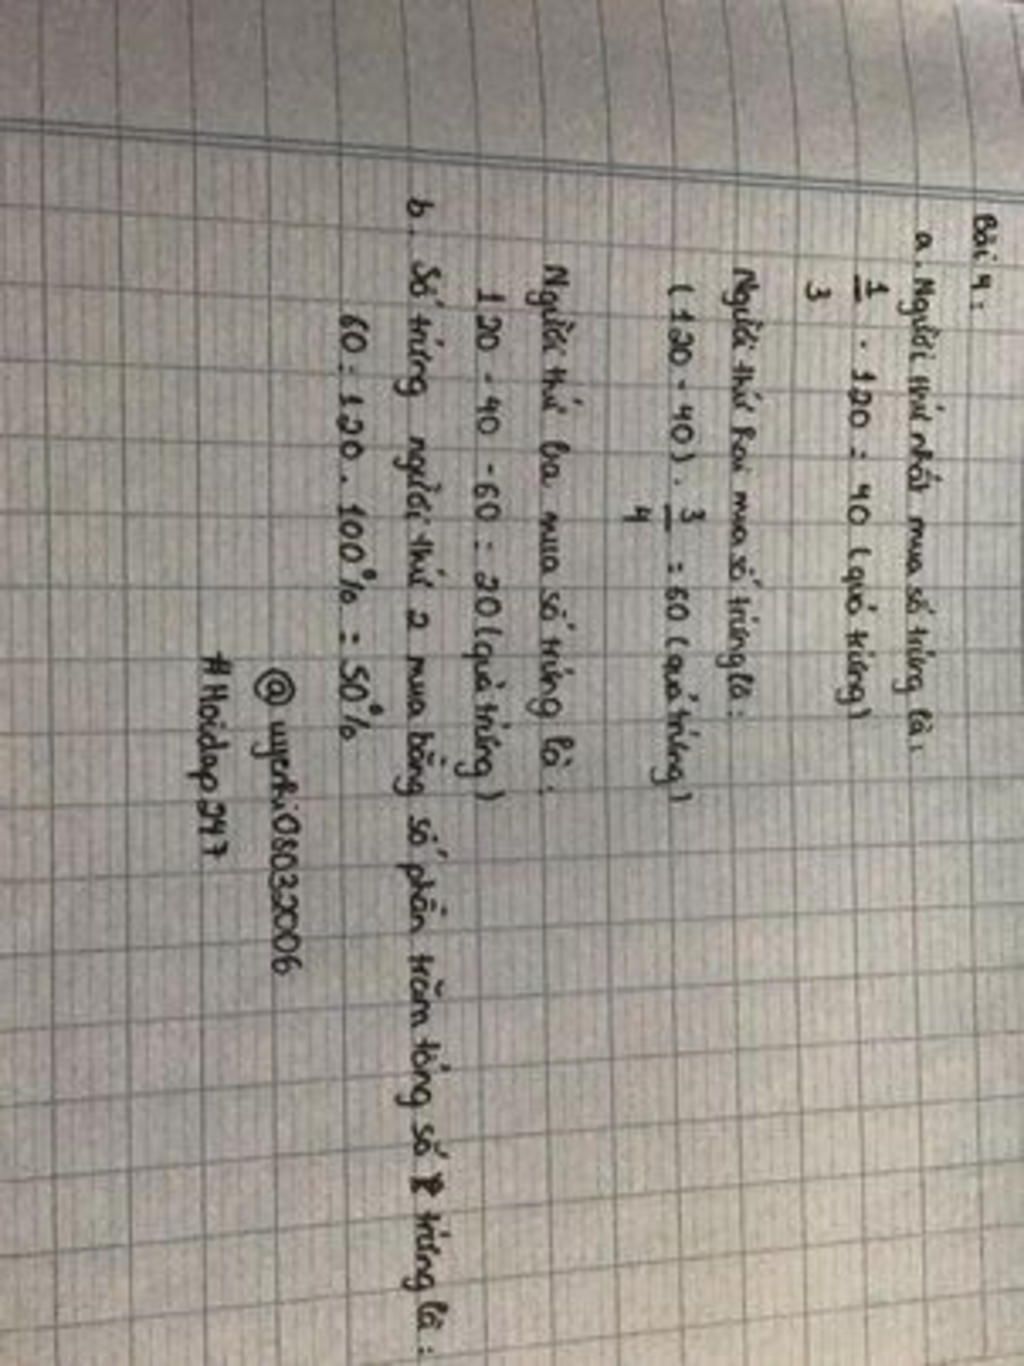 Bài 4:
a. Người thứ nhất mua số trứng là:
1/3 . 120 = 40 (quả trứng)
Người thứ hai mua số trứng là:
(120 - 40) . 3/4 = 60 (quả trứng)
Người thứ ba mua số trứng là:
120 - 40 - 60 = 20 (quả trứng)
b. Số trứng người thứ 2 mua bằng số phần trăm tổng số trứng là:
60 : 120 . 100% = 50%
@uyenhi08032006
#Hoidap247